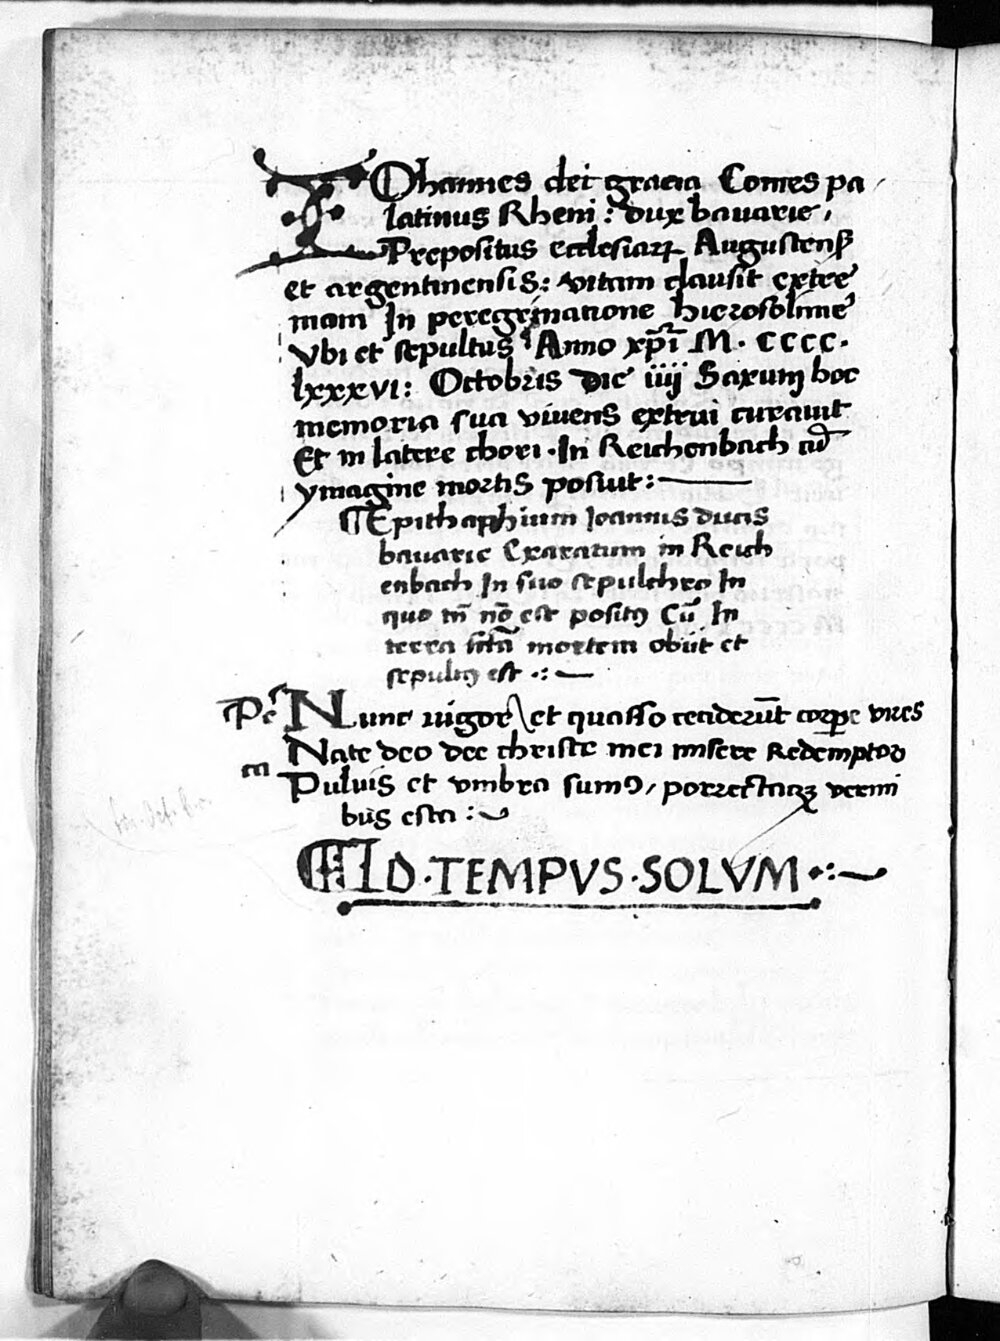 IOhannes dei gracia Comes pa
latinus Rheni : dux bavarie,
Prepositus ecclesiarꝝ Augustensꝭ
et argentinensis : vitam clausit extre
mam In peregrinatione hierosolime
Vbi et sepultus Anno xp̄i M · CCCC ·
lxxxvi : Octobris die iiij Saxum hoc
memoria sua vivens extrui curavit
Et in latere chori · In Reichenbach cū
ymagine mortis posuit :
¶ Epithaphium Ioannis ducis
bavarie Exaratum in Reich
enbach In suo sepulchro In
quo tn̄ nō est positꝰ Cū In
terra sctā mortem obiit et
sepultꝰ est .:
Nunc vigor et quasso ceciderūt corpe vires
Nate deo dee christe mei miserere Redemptor
Pulvis et vmbra sumꝰ, porrectaqꝫ vermi
bus esca :
¶ ID · TEMPVS · SOLVM ·: